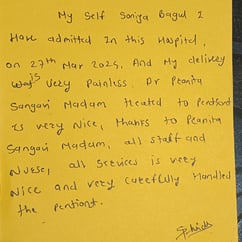 My Self Soniya Bagul I
Have admitted In this Hospital,
on 27th Mar 2025, And My delivery
is very Painless. Dr Pranita
Sangavi Madam treated to pentiant
is very Nice, thanks to Pranita
Sangavi Madam, all staff and
Nurse, all Services is very
Nice and very carefully Handled
the pentiant.